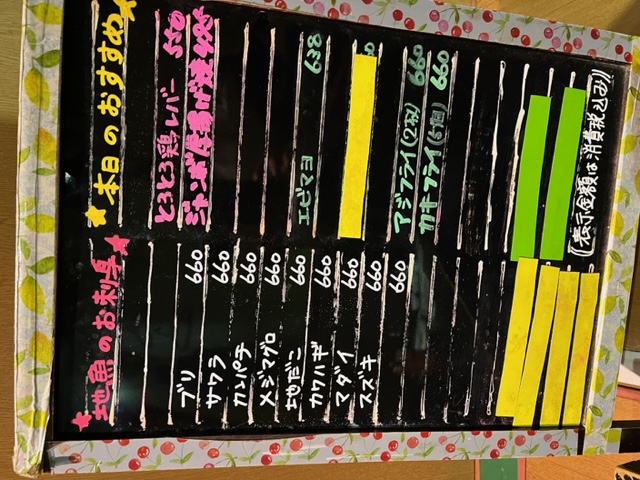 ★地魚のお刺身★
ブリ 660
サワラ 660
カンパチ 660
メジマグロ 660
地だこ 660
カワハギ 660
マダイ 660
スズキ 660
★本日のおすすめ★
とろとろ鶏レバー 550
ジャンボ厚揚げ焼 495
エビマヨ 638
アジフライ(2枚) 660
カキフライ(5個) 660
(表示金額は消費税込み!!)